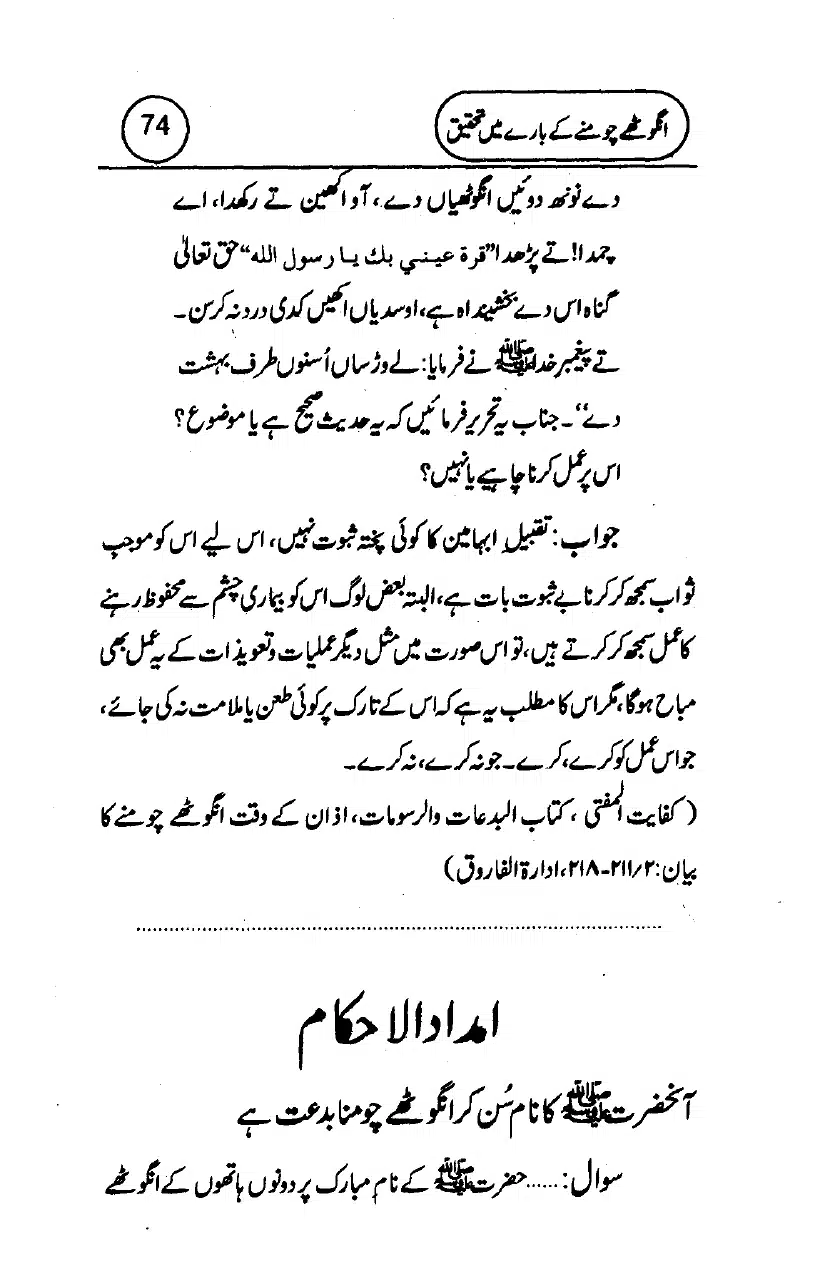 انگوٹھے چومنے کے بارے میں تحقیق
74
دے نونھ دوئیں انگوٹھیاں دے، آو اکھین تے رکھدا، اے
چمدا! تے پڑھدا "قرة عيني بك يا رسول الله" حق تعالیٰ
گناہ اس دے بخشیندا ہ ہے، اوسدیاں اکھیں کدی درد نہ کرسن۔
تے پیغمبر خدا ﷺ نے فرمایا: لے وڑساں اُسنوں طرف بہشت
دے"۔ جناب یہ تحریر فرمائیں کہ یہ حدیث صحیح ہے یا موضوع؟
اس پر عمل کرنا چاہیے یا نہیں؟
جواب: تقبیلِ ابہامین کا کوئی پختہ ثبوت نہیں، اس لیے اس کو موجبِ
ثواب سمجھ کر کرنا بے ثبوت بات ہے، البتہ بعض لوگ اس کو بیماری چشم سے محفوظ رہنے
کا عمل سمجھ کر کرتے ہیں، تو اس صورت میں مثل دیگر عملیات و تعویذات کے یہ عمل بھی
مباح ہوگا، مگر اس کا مطلب یہ ہے کہ اس کے تارک پر کوئی طعن یا ملامت نہ کی جائے،
جو اس عمل کو کرے، کرے۔ جو نہ کرے، نہ کرے۔
(کفایت المفتی، کتاب البدعات والرسومات، اذان کے وقت انگوٹھے چومنے کا
بیان: ۲/۲۱۱-۲۱۸، ادارة الفاروق)
امداد الاحکام
آنحضرت ﷺ کا نام سُن کر انگوٹھے چومنا بدعت ہے
سوال: ...... حضرت ﷺ کے نامِ مبارک پر دونوں ہاتھوں کے انگوٹھے